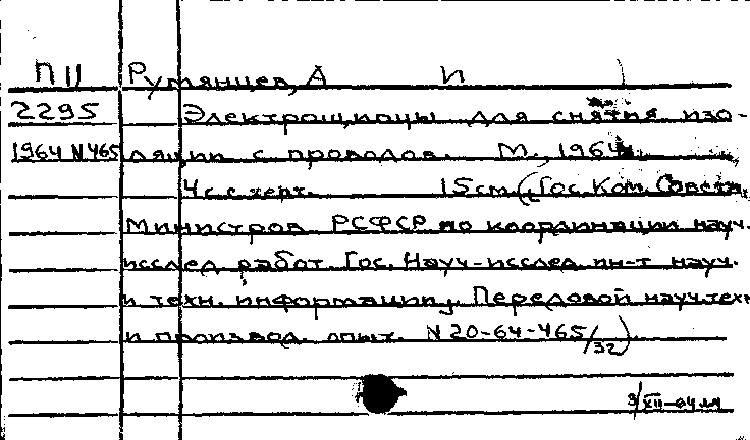 П II Румянцев, А И
2295 Электрощипцы для снятия изо-
1964 N 465 ляции с проводов. М., 1964.
4 с. с черт. 15 см. (Гос. Ком. Совета
Министров РСФСР по координации науч.
исслед. работ. Гос. Науч-исслед. ин-т науч.
и техн. информации. Передовой науч.техн
и производ. опыт. N 20-64-465/32)
XII-64